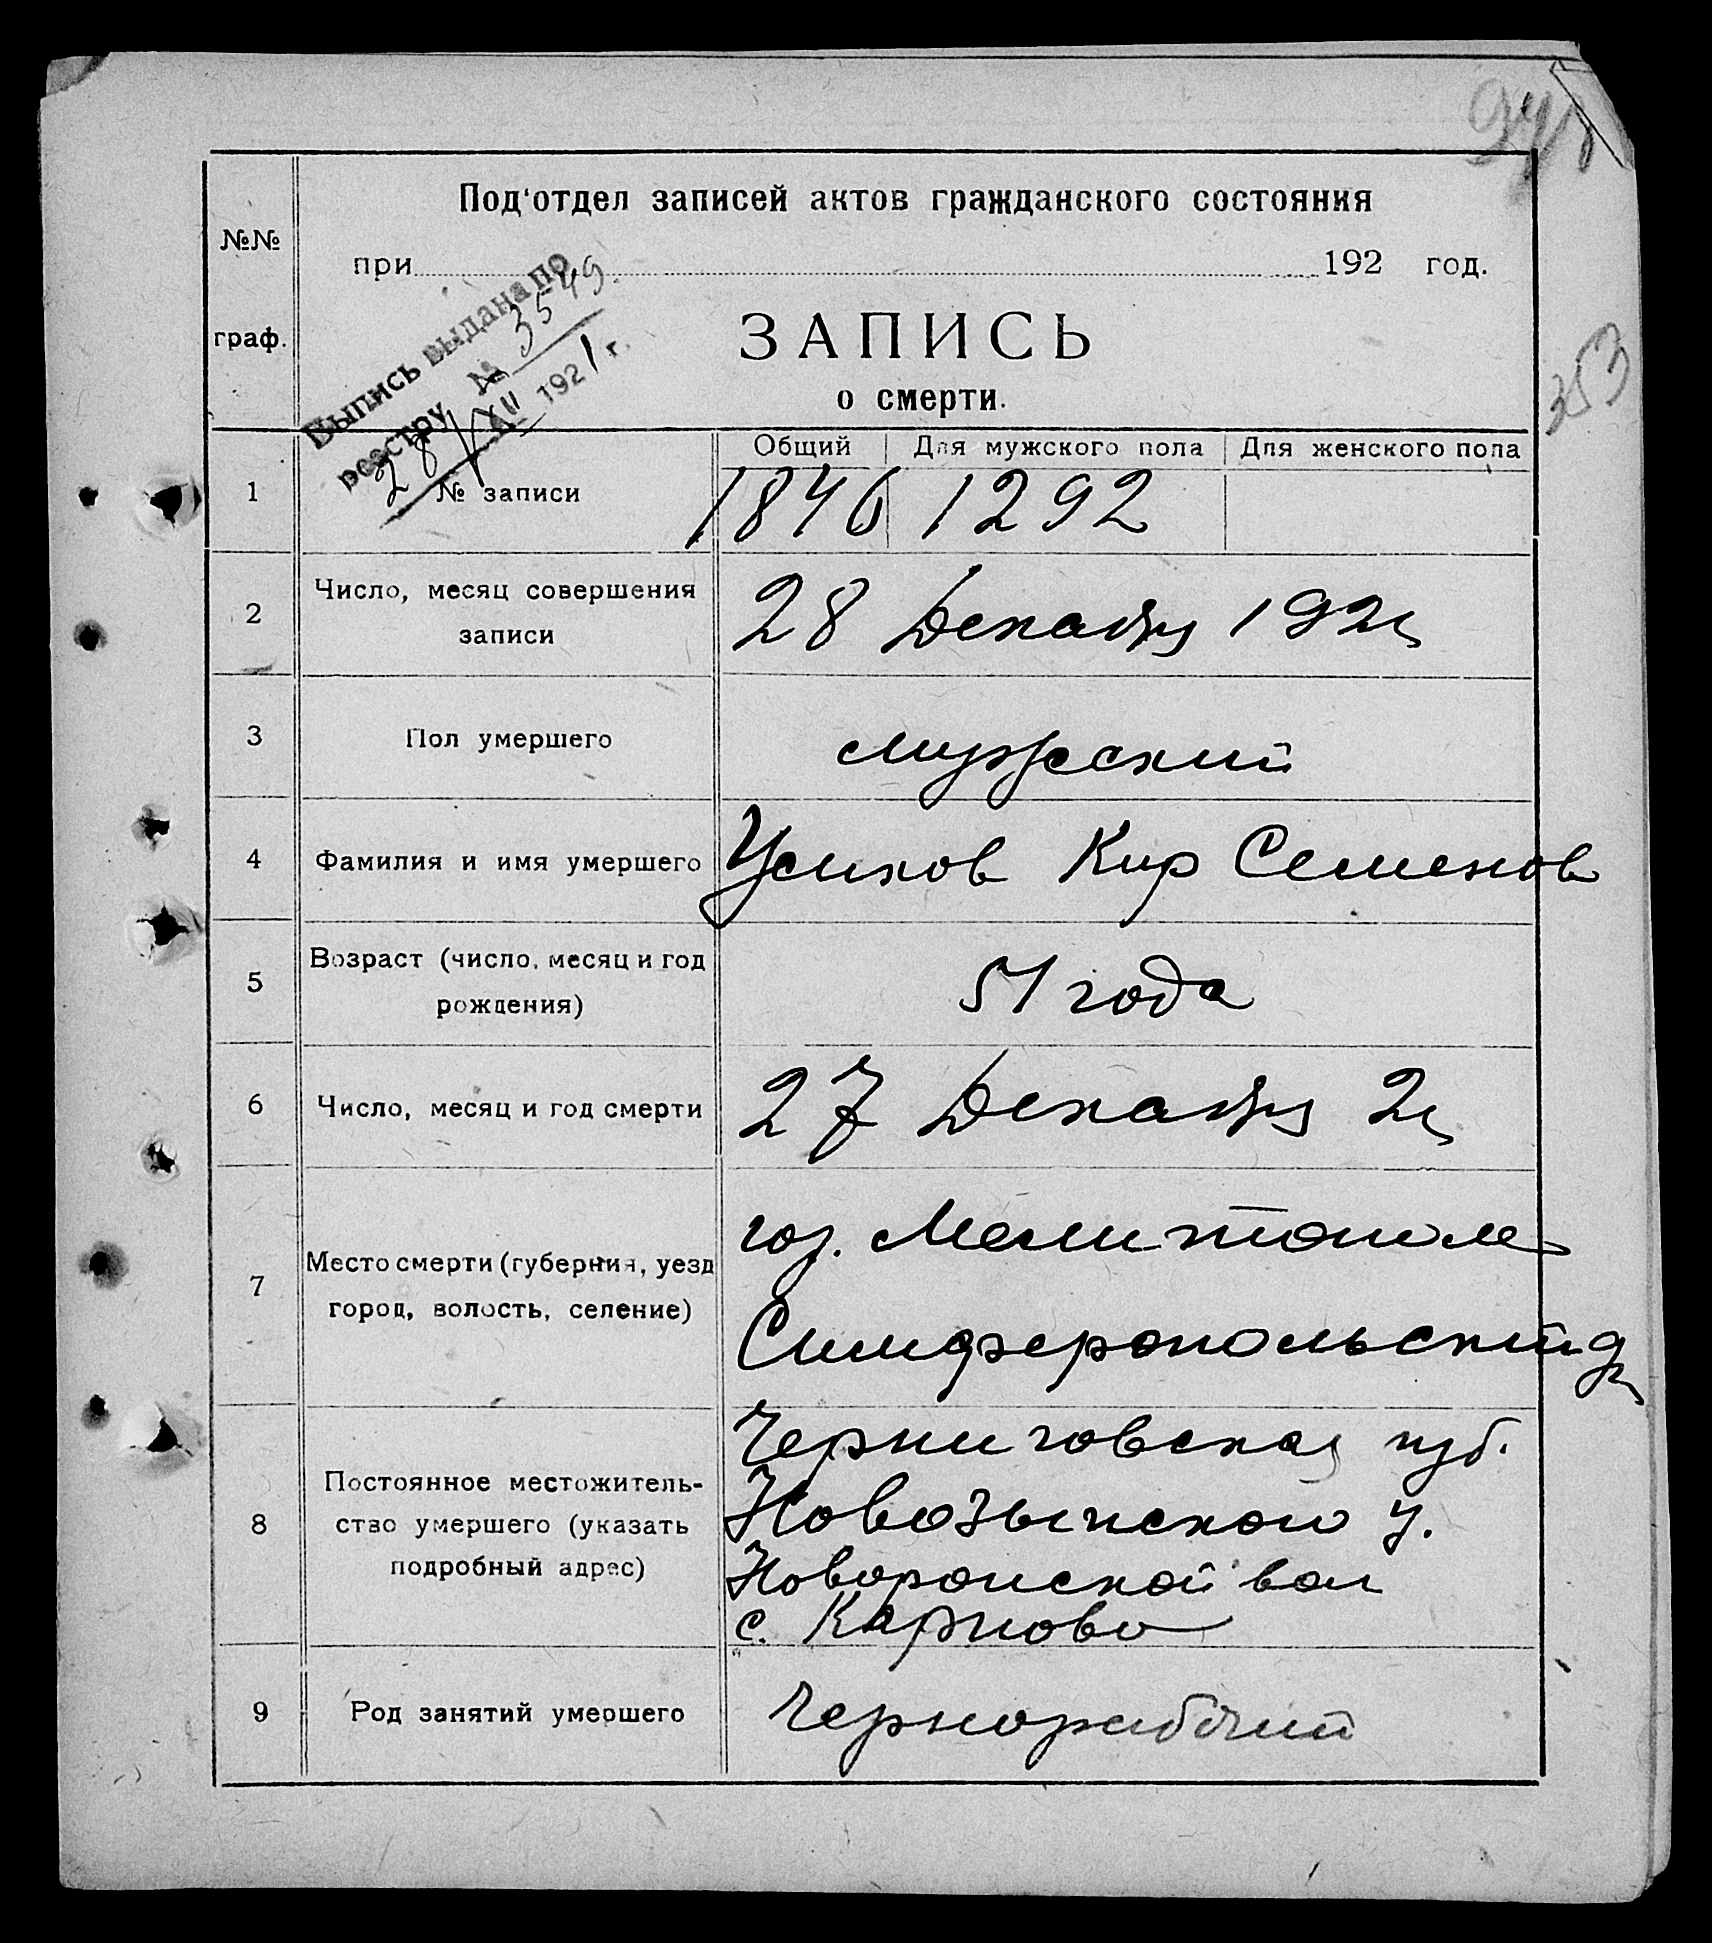 Под'отдел записей актов гражданского состояния
№№
граф.
при 192 год.
Выпись выдана по
реестру № 3549.
28/XII 1921 г.
ЗАПИСЬ
о смерти.
353
Общий Для мужского пола Для женского пола
1 № записи 1846 1292
2 Число, месяц совершения
записи
28 Декабря 1921
3 Пол умершего мужской
4 Фамилия и имя умершего Усиков Кир Семенов
5 Возраст (число, месяц и год
рождения)
51 года
6 Число, месяц и год смерти 27 Декабря 21
7 Место смерти (губерния, уезд
город, волость, селение)
гор. Мелитополь
Симферопольский
8 Постоянное местожитель-
ство умершего (указать
подробный адрес)
Черниговская губ.
Новозыбского у.
Новоропской вол
с. Карпово
9 Род занятий умершего чернорабочий